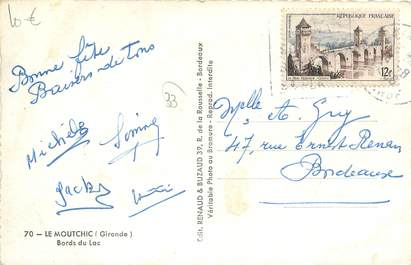 10 €
Bonne fête
Baisers de tous
Michèle
Jacky
33
70 — LE MOUTCHIC (Gironde)
Bords du Lac
Edit. RENAUD & BUZAUD 39, R. de la Rousselle - Bordeaux
Véritable Photo au Bromure - Reprod. Interdite
RÉPUBLIQUE FRANÇAISE
12F
Melle A. Guy
47, rue Ernest Renan
Bordeaux